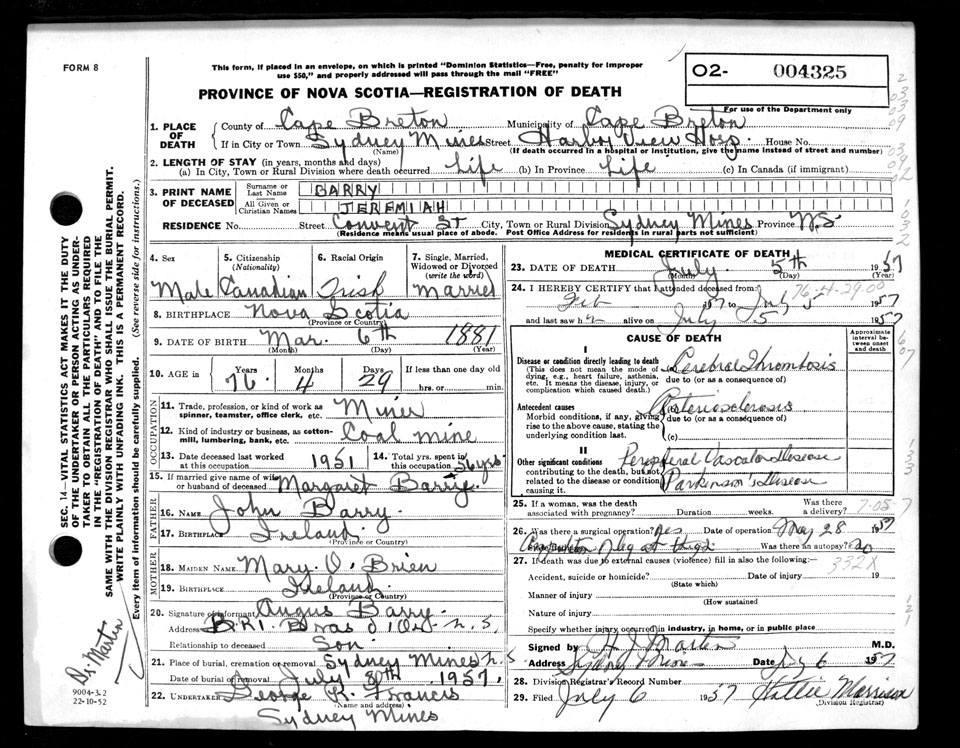 FORM 8
This form, if placed in an envelope, on which is printed "Dominion Statistics—Free, penalty for improper
use $50," and properly addressed will pass through the mail "FREE"
PROVINCE OF NOVA SCOTIA—REGISTRATION OF DEATH
O2- 004325
For use of the Department only
1. PLACE OF DEATH
County of Cape Breton Municipality of Cape Breton
If in City or Town Sydney Mines Street Harbor View Hosp. House No.
(Name) (If death occurred in a hospital or institution, give the name instead of street and number)
2. LENGTH OF STAY (in years, months and days)
(a) In City, Town or Rural Division where death occurred Life (b) In Province Life (c) In Canada (if immigrant)
3. PRINT NAME OF DECEASED
Surname or Last Name BARRY
All Given or Christian Names JEREMIAH
RESIDENCE No. Street Convent St City, Town or Rural Division Sydney Mines Province N.S.
(Residence means usual place of abode. Post Office Address for residents in rural parts not sufficient)
4. Sex Male
5. Citizenship (Nationality) Canadian
6. Racial Origin Irish
7. Single, Married, Widowed or Divorced (write the word) Married
8. BIRTHPLACE Nova Scotia
(Province or Country)
9. DATE OF BIRTH Mar. 6th 1881
(Month) (Day) (Year)
10. AGE in Years 76 Months 4 Days 29 If less than one day old hrs. or min.
OCCUPATION
11. Trade, profession, or kind of work as spinner, teamster, office clerk, etc. Miner
12. Kind of industry or business, as cotton-mill, lumbering, bank, etc. Coal Mine
13. Date deceased last worked at this occupation 1951
14. Total yrs. spent in this occupation 56 yrs.
15. If married give name of wife or husband of deceased Margaret Barry
FATHER
16. NAME John Barry
17. BIRTHPLACE Ireland
(Province or Country)
MOTHER
18. MAIDEN NAME Mary O'Brien
19. BIRTHPLACE Ireland
(Province or Country)
20. Signature of informant Angus Barry
Address R.R.1. Bras d'Or N.S.
Relationship to deceased Son
21. Place of burial, cremation or removal Sydney Mines N.S
Date of burial or removal July 8th 1957.
22. UNDERTAKER George R. Francis
(Name and address)
Sydney Mines
MEDICAL CERTIFICATE OF DEATH
23. DATE OF DEATH July 5th 1957
(Month) (Day) (Year)
24. I HEREBY CERTIFY that I attended deceased from
Feb 1957 to July 5 1957
76-4-29.00
and last saw h alive on July 5 1957
CAUSE OF DEATH
Approximate interval between onset and death
I
Disease or condition directly leading to death
(This does not mean the mode of dying, e.g., heart failure, asthenia, etc. It means the disease, injury, or complication which caused death.)
Cerebral Thrombosis
due to (or as a consequence of)
Antecedent causes
Morbid conditions, if any, giving rise to the above cause, stating the underlying condition last.
Arteriosclerosis
due to (or as a consequence of)
(c)
II
Other significant conditions contributing to the death, but not related to the disease or condition causing it.
Peripheral Vascular Disease
Parkinson's Disease
25. If a woman, was the death associated with pregnancy? Duration weeks. Was there a delivery?
26. Was there a surgical operation? Yes Date of operation May 28 1957
Amputation leg at thigh Was there an autopsy? No
27. If death was due to external causes (violence) fill in also the following:—
332X
Accident, suicide or homicide? Date of injury 19
(State which)
Manner of injury
(How sustained
Nature of injury
Specify whether injury occurred in industry, in home, or in public place
Signed by Martin M.D.
Address Sydney Mines Date July 6 1957
28. Division Registrar's Record Number
29. Filed July 6 1957 Hattie Morrison
(Division Registrar)
SEC. 14—VITAL STATISTICS ACT MAKES IT THE DUTY
OF THE UNDERTAKER OR PERSON ACTING AS UNDER-
TAKER TO OBTAIN ALL THE PARTICULARS REQUIRED
IN THE "REGISTRATION OF DEATH" AND TO FILE THE
SAME WITH THE DIVISION REGISTRAR WHO SHALL ISSUE THE BURIAL PERMIT.
WRITE PLAINLY WITH UNFADING INK. THIS IS A PERMANENT RECORD.
Every item of information should be carefully supplied. (See reverse side for instructions.)
Dr. Martin
9004-3.2
22-10-52